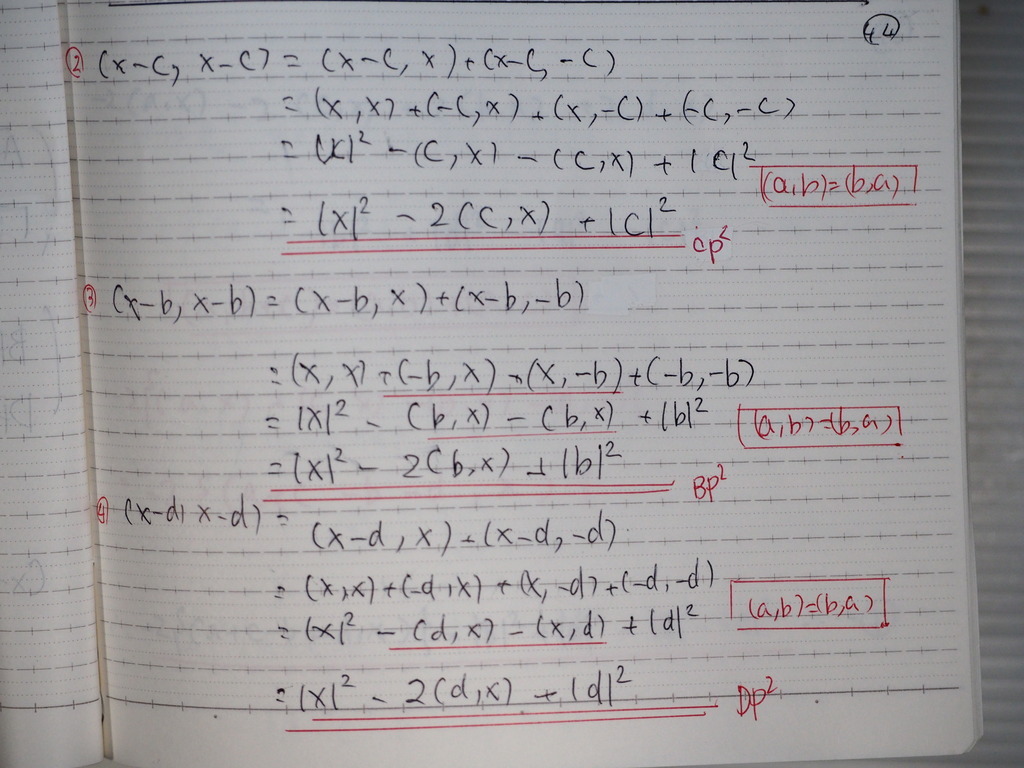 44
② (x-c, x-c) = (x-c, x)+(x-c, -c)
= (x, x)+(-c, x)+(x, -c)+(-c, -c)
= |x|² - (c, x) - (c, x) + |c|²
(a,b)=(b,a)
= |x|² - 2(c, x) + |c|²
CP²
③ (x-b, x-b) = (x-b, x)+(x-b, -b)
= (x, x)+(-b, x)+(x, -b)+(-b, -b)
= |x|² - (b, x) - (b, x) + |b|²
(a,b)=(b,a)
= |x|² - 2(b, x) + |b|²
BP²
④ (x-d, x-d) =
(x-d, x)+(x-d, -d)
= (x, x)+(-d, x)+(x, -d)+(-d, -d)
= |x|² - (d, x) - (x, d) + |d|²
(a,b)=(b,a)
= |x|² - 2(d, x) + |d|²
DP²